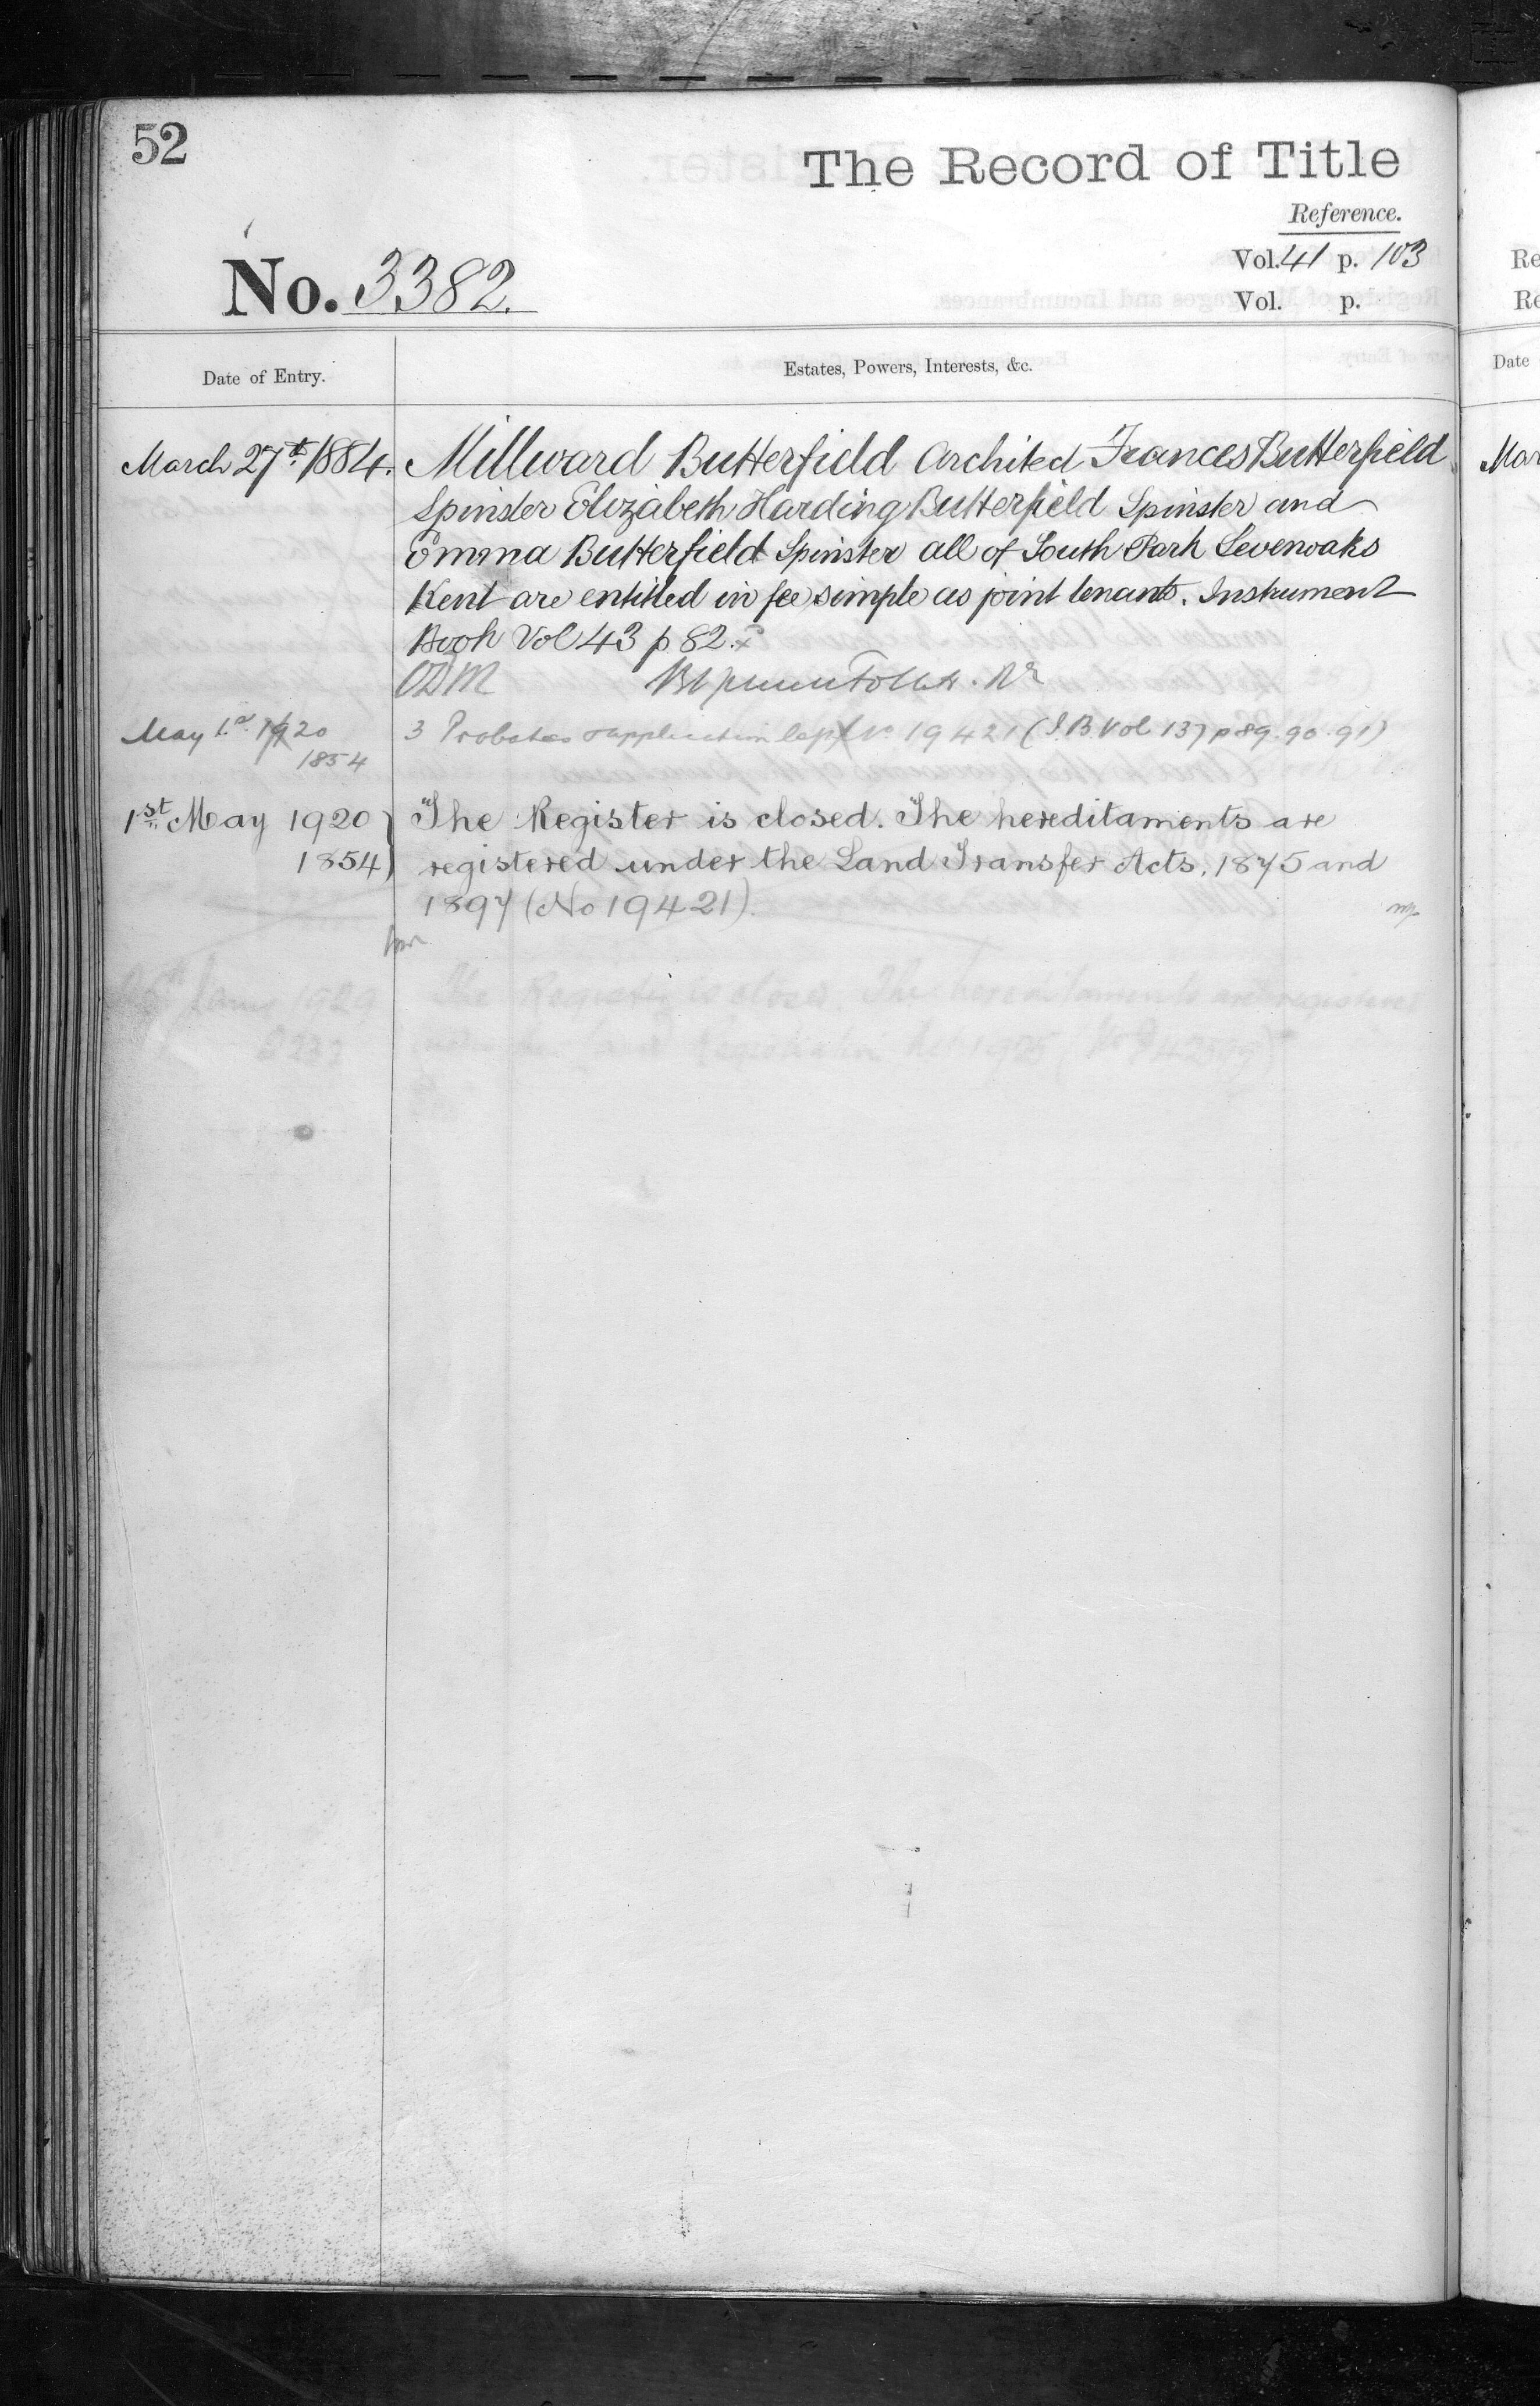 52
The Record of Title
Reference.
Vol. 41 p. 103
No. 3382.
Vol. p.
Date of Entry.
Estates, Powers, Interests, &c.
March 27th 1884. Millward Butterfield Architect Frances Butterfield
Spinster Elizabeth Harding Butterfield Spinster and
Emma Butterfield Spinster all of South Park Sevenoaks
Kent are entitled in fee simple as joint tenants. Instrument
Book Vol 43 p 82.
May 1st 1920 3 Probates application No 19421 (I.B. Vol 137 p 89. 90. 91)
1854
1st May 1920 The Register is closed. The hereditaments are
1854 registered under the Land Transfer Acts, 1875 and
1897 (No 19421).
1929 The Register is closed. The hereditaments are registered
Land Registration Act 1925
Re
Re
Date
Mar